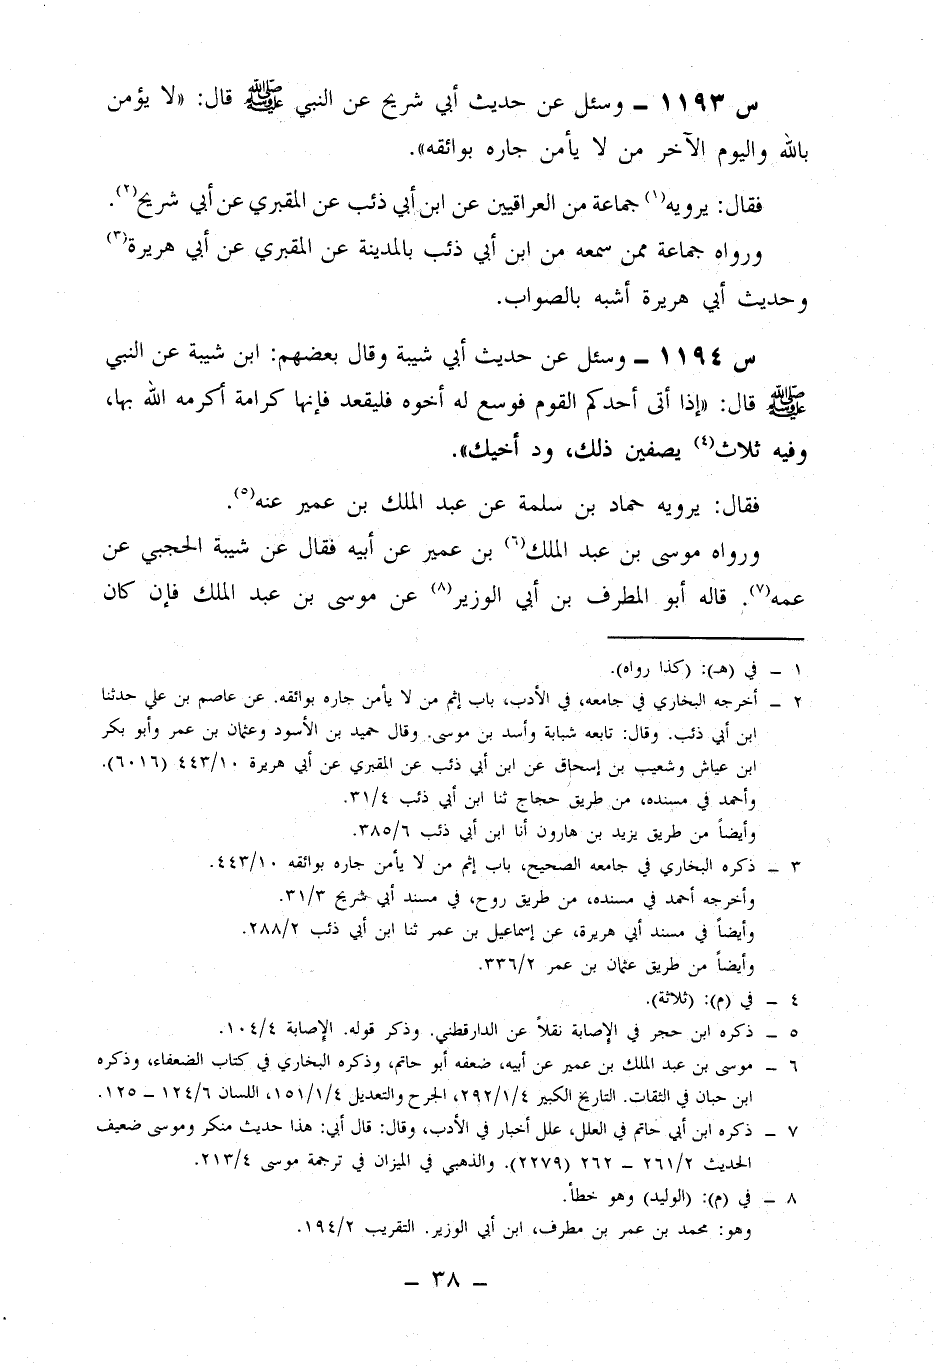 س ١١٩٣ ـ وسئل عن حديث أبي شريح عن النبي ﷺ قال: «لا يؤمن
بالله واليوم الآخر من لا يأمن جاره بوائقه».
فقال: يرويه(١) جماعة من العراقيين عن ابن أبي ذئب عن المقبري عن أبي شريح(٢).
ورواه جماعة ممن سمعه من ابن أبي ذئب بالمدينة عن المقبري عن أبي هريرة(٣)
وحديث أبي هريرة أشبه بالصواب.
س ١١٩٤ ـ وسئل عن حديث أبي شيبة وقال بعضهم: ابن شيبة عن النبي
ﷺ قال: «إذا أتى أحدكم القوم فوسع له أخوه فليقعد فإنها كرامة أكرمه الله بها،
وفيه ثلاث(٤) يصفين ذلك، ود أخيك».
فقال: يرويه حماد بن سلمة عن عبد الملك بن عمير عنه(٥).
ورواه موسى بن عبد الملك(٦) بن عمير عن أبيه فقال عن شيبة الحجبي عن
عمه(٧). قاله أبو المطرف بن أبي الوزير(٨) عن موسى بن عبد الملك فإن كان
١ ـ في (هـ): (كذا رواه).
٢ ـ أخرجه البخاري في جامعه، في الأدب، باب إثم من لا يأمن جاره بوائقه. عن عاصم بن علي حدثنا
ابن أبي ذئب. وقال: تابعه شبابة وأسد بن موسى. وقال حميد بن الأسود وعثمان بن عمر وأبو بكر
ابن عياش وشعيب بن إسحاق عن ابن أبي ذئب عن المقبري عن أبي هريرة ٤٤٣/١٠ (٦٠١٦).
وأحمد في مسنده، من طريق حجاج ثنا ابن أبي ذئب ٣١/٤.
وأيضاً من طريق يزيد بن هارون أنا ابن أبي ذئب ٣٨٥/٦.
٣ ـ ذكره البخاري في جامعه الصحيح، باب إثم من لا يأمن جاره بوائقه ٤٤٣/١٠.
وأخرجه أحمد في مسنده، من طريق روح، في مسند أبي شريح ٣١/٣.
وأيضاً في مسند أبي هريرة، عن إسماعيل بن عمر ثنا ابن أبي ذئب ٢٨٨/٢.
وأيضاً من طريق عثمان بن عمر ٣٣٦/٢.
٤ ـ في (م): (ثلاثة).
٥ ـ ذكره ابن حجر في الإصابة نقلاً عن الدارقطني. وذكر قوله. الإصابة ١٠٤/٤.
٦ ـ موسى بن عبد الملك بن عمير عن أبيه، ضعفه أبو حاتم، وذكره البخاري في كتاب الضعفاء، وذكره
ابن حبان في الثقات. التاريخ الكبير ٢٩٢/١/٤، الجرح والتعديل ١٥١/١/٤، اللسان ١٢٤/٦ ـ ١٢٥.
٧ ـ ذكره ابن أبي حاتم في العلل، علل أخبار في الأدب، وقال: قال أبي: هذا حديث منكر وموسى ضعيف
الحديث ٢٦١/٢ ـ ٢٦٢ (٢٢٧٩). والذهبي في الميزان في ترجمة موسى ٢١٣/٤.
٨ ـ في (م): (الوليد) وهو خطأ.
وهو: محمد بن عمر بن مطرف، ابن أبي الوزير. التقريب ١٩٤/٢.
ـ ٣٨ ـ